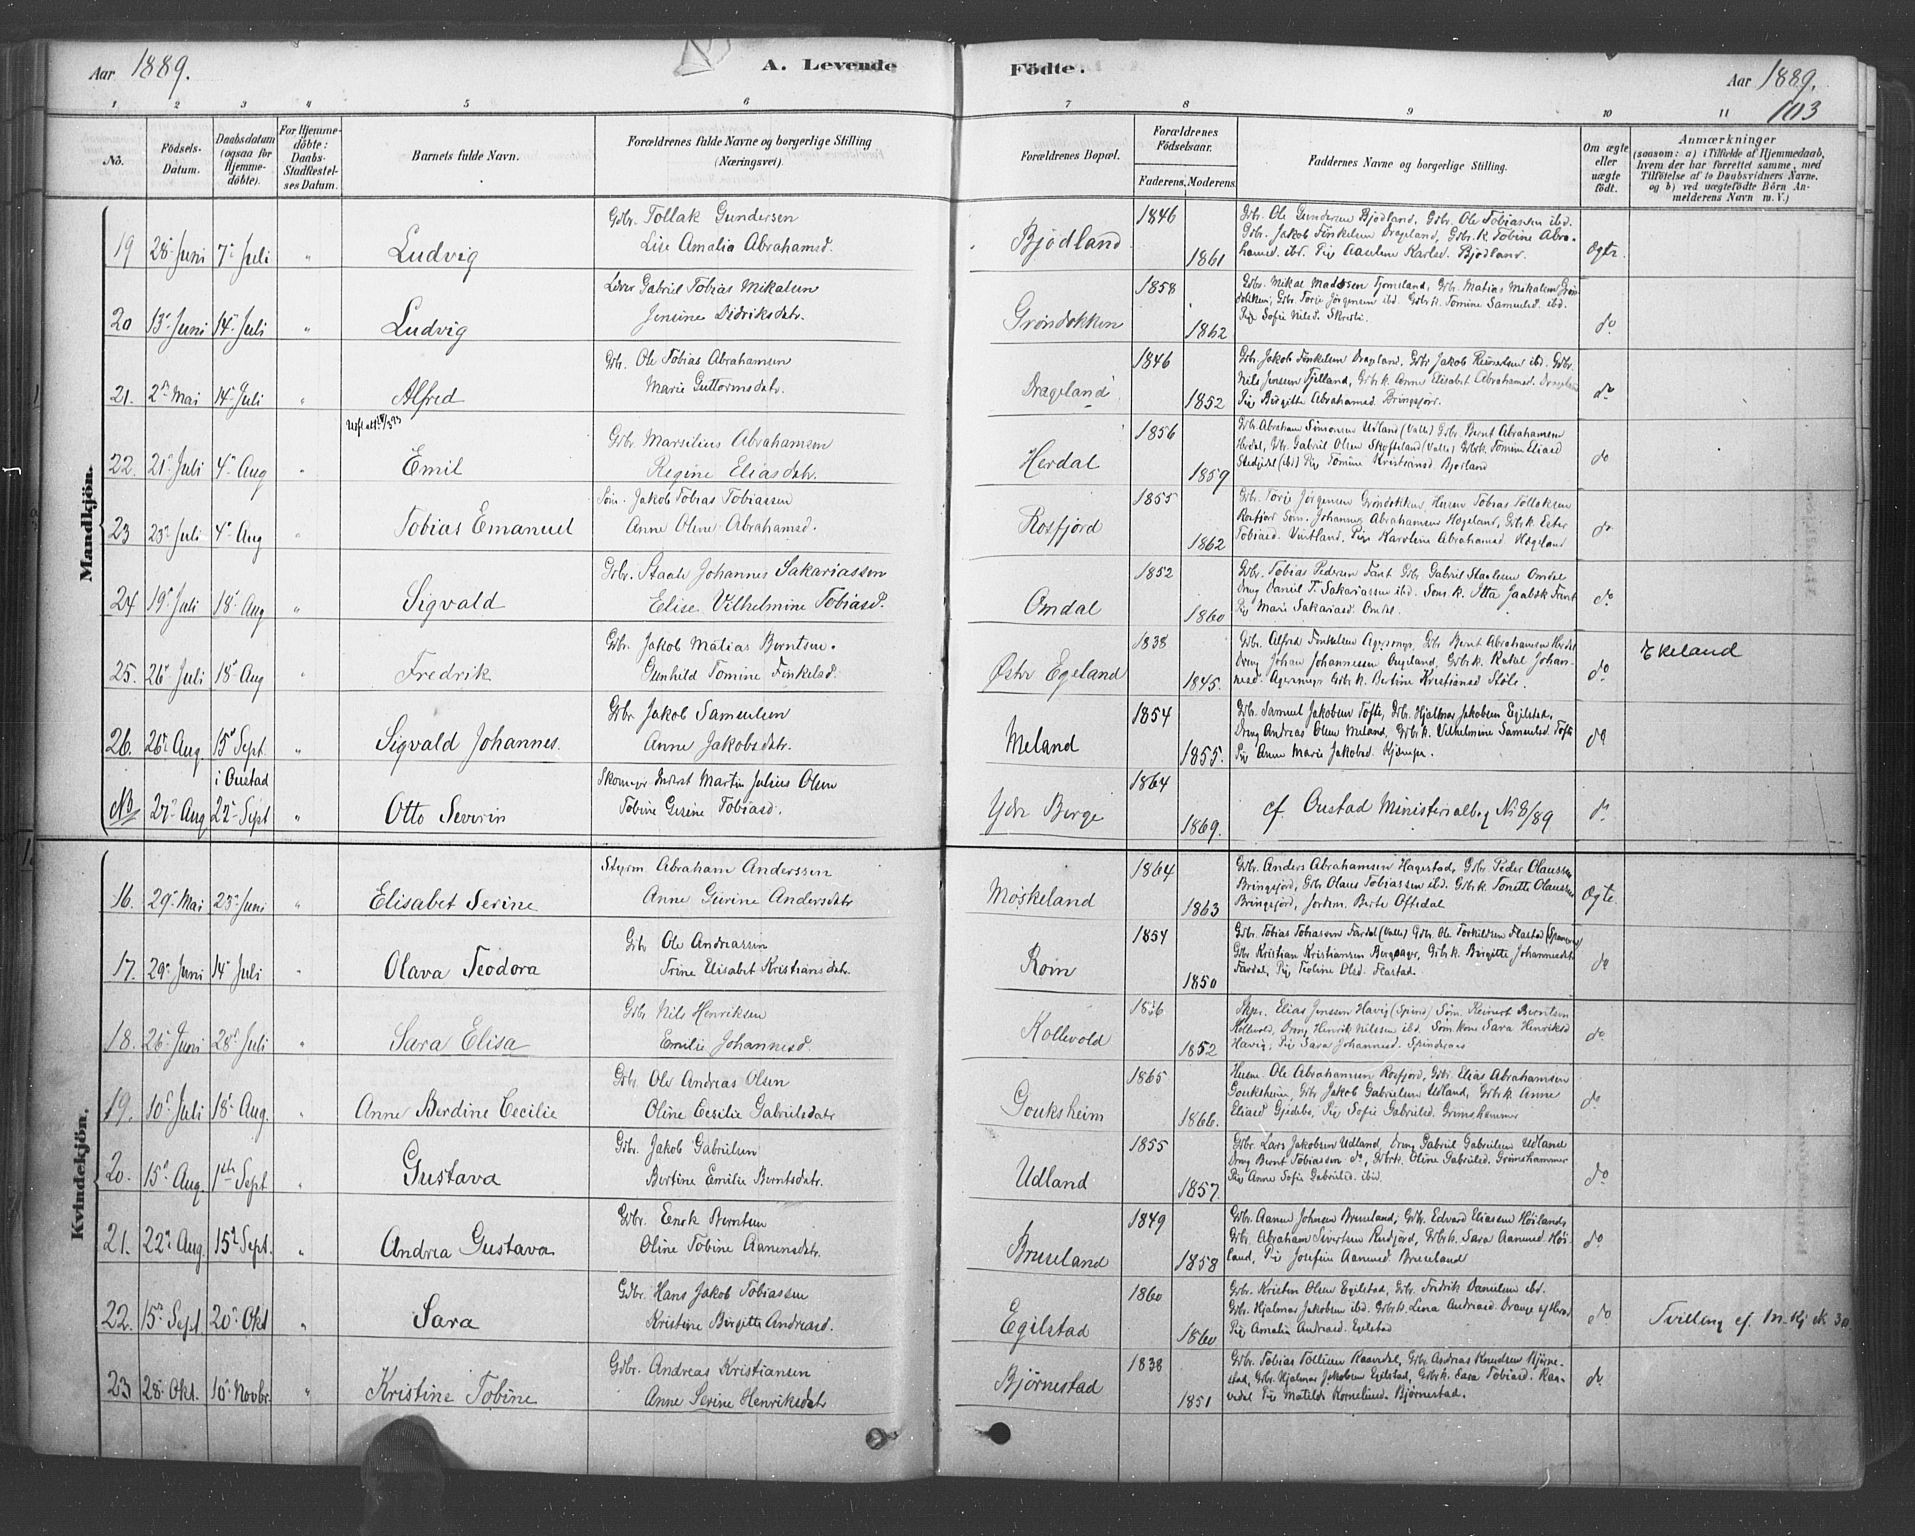 Aar 1889.
A. Levende Födte.
Aar 1889.
103
1 2 3 4 5 6 7 8 9 10 11
No.
Födsels-Datum.
Daabsdatum (ogsaa for Hjemme-döbte).
For Hjemme-döbte: Daabs-Stadfæstel-ses Datum.
Barnets fulde Navn.
Forældrenes fulde Navne og borgerlige Stilling (Næringsvei).
Forældrenes Bopæl.
Forældrenes Födselsaar.
Faderens. Moderens.
Faddernes Navne og borgerlige Stilling.
Om ægte eller uægte födt.
Anmærkninger
(saasom: a) i Tilfælde af Hjemmedaab, hvem der har forrettet samme, med Tilföielse af to Daabsvidners Navne. og b) ved uægtefödte Börn An-melderens Navn m. V.)
Mandkjön.
19 28 Juni 7 Juli " Ludvig
Gdbr. Tollak Gundersen
Lise Amalia Abrahamsd.
Bjødland 1846 1861
Gdbr. Ole Gundersen Bjødland, Gdbr. Ole Tobiassen ibd.
Gdbr. Jakob Finkelsen Drageland, Gdbr. k. Tobine Abra-
hamsd. ibd. Pig Aaselene Karlsd. Bjødland.
Ægte.
20 13 Juni 14 Juli " Ludvig
Gabriel Tobias Mikalsen
Jensine Didriksdatr.
Grøndokken 1858 1862
Gdbr. Mikal Madssen Tjomsland, Gdbr. Matias Mikalsen Grøn-
dokken, Gdbr Torje Jørgensen ibd. Gdbrk. Tomine Samuelsd. ibd.
Pig Sofie Nilsd. Skreste
do
21. 2 Mai 14 Juli " Alfred
Gdbr. Ole Tobias Abrahamsen
Marie Guttormsdatr.
Drageland 1846 1852
Gdbr. Jakob Finkelsen Drageland, Gdbr Jakob Reinertsen ibd. Gdbr.
Nils Jensen Fjelland, Gdbr k. Anne Elisabet Abrahamsd. Drageland
Pig Birgitte Abrahamsd. Bringsjor.
do
22. 21 Juli 4 Aug " Emil
Gdbr Marselius Abrahamsen
Regine Eliasdatr.
Herdal 1856 1859
Gdbr. Abraham Simonsen Udland (Valle) Gdbr. Bernt Abrahamsen
Herdal, Gdbr. Gabriel Olsen Skofteland (Valle) Gdbrk. Tomine Eliasd
Stedjedal (ibd) Pig Tomine Kristiansd. Bjorland
do
23 23 Juli 4 Aug " Tobias Emanuel
Søm. Jakob Tobias Tobiassen
Anne Oline Abrahamsd.
Rosfjord 1855 1862
Gdbr. Torje Jørgensen Grøndokken, Husm Tobias Tollaksen
Rosfjord Søm. Johannes Abrahamsen Hægeland, Gdbr k. Ester
Tobiasd. Vintland, Pig Karoline Abrahamsd. Hægeland
do
24 19 Juli 18 Aug " Sigvald
Gdbr. Staale Johannes Sakariassen
Elise Vilhelmine Tobiasd.
Omdal 1852 1860
Gdbr. Tobias Pedersen Fant Gdbr Gabriel Staalesen Omdal
Dreng Daniel T. Sakariassen ibd. Søm. k. Itta Jaabsk Fant
Pig Marie Sakariasd. Omdal.
do
25. 26 Juli 18 Aug " Fredrik
Gdbr. Jakob Matias Berntsen.
Gunhild Tomine Finkelsd.
Øster Egeland 1838 1845.
Gdbr. Alfred Finkelsen Agersmyr, Gdbr Bernt Abrahamsen Herdal
Dreng Johan Johannessen Ougeland, Gdbr k. Rakel Johan-
nesd. Agersmyr Gdbr k. Bertine Kristiansd Støle.
do
Ekeland
26. 26 Aug. 15 Sept. " Sigvald Johannes.
Gdbr Jakob Samuelsen
Anne Jakobsdatr.
Meland 1854 1855.
Gdbr. Samuel Jakobsen Tofte, Gdbr. Hjalmar Jakobsen Egilstad,
Dreng Andreas Olsen Meland, Gdbr k. Vilhelmine Samuelsd. Tofte
Pig Anne Marie Jakobsd.
do
i Oustad
NB 27 Aug 22 Sept " Otto Severin
Skomager Inderst Martin Julius Olsen
Tobine Gesine Tobiasd.
Ydr Berge 1864 1869.
cf. Oustad Ministerialbog No 8/89
do
Kvindekjön.
16. 29 Mai 23 Juni " Elisabet Serine
Styrm Abraham Anderssen
Anne Gurine Andersdatr
Moskeland 1864 1863
Gdbr. Anders Abrahamsen Hagestad, Gdbr Peder Olaussen
Bringsjord, Gdbr Olaus Tobiassen ibd. Gdbr k. Tonette Olaussen
Bringsjord, Jordm. Berte Oftedal
Ægte
17. 29 Juni 14 Juli " Olava Teodora
Gdbr Ole Andreassen
Trine Elisabet Kristiansdatr.
Rom 1854 1850
Gdbr. Tobias Tobiassen Fardal (Valle) Gdbr. Ole Torkildsen Flastad
Gdbr Kristian Kristiansen Bergsager, Gdbr k. Birgitte Johannesdat
Fardal, Pig Teoline Olsd. Flastad.
do
18. 26 Juni 28 Juli " Sara Elisa
Gdbr Nils Henriksen
Emilie Johannesd.
Kollevold 1856 1852
Skpr. Elias Jenssen Havig (Spind) Søm. Reinert Berntsen
Kollevold, Dreng Henrik Nilssen ibd. Søm kone Sara Henriksd
Havig, Pig Sara Johannesd.
do
19. 10 Juli 18 Aug. " Anne Berdine Cecilie
Gdbr. Ole Andreas Olsen
Oline Cesilie Gabrielsdatr
Gouksheim 1865 1866.
Husm. Ole Abrahamsen Rosfjord, Gdbr. Elias Abrahamsen
Gouksheim, Gdbr Jakob Gabrielsen Udland, Gdbr k. Anne
Eliasd Gjedebo, Pig Sofie Gabrielsd. Grimshammer
do
20. 15 Aug. 1ste Sept " Gustava
Gdbr. Jakob Gabrielsen
Bertine Emilie Berntsdatr.
Udland 1855 1857.
Gdbr. Lars Jakobsen Udland, Dreng Gabriel Gabrielsen Udland
Dreng Bernt Tobiassen do, Gdbrk. Oline Gabrielsd. Grimshammer
Pig Anne Sofie Gabrielsd. ibid.
do
21. 22 Aug. 15 Sept. " Andrea Gustava
Gdbr. Enok Berntsen
Oline Tobine Aanensdatr.
Bruseland 1849 1858
Gdbr. Aanen Johnsen Bruseland, Gdbr. Edvard Eliassen Høiland,
Gdbr. Abraham Sivertsen Rudjord, Gdbr k. Sara Aanensd. Høi-
land, Pig Josefine Aanensd. Bruseland
do
22. 15 Sept. 20 Okt " Sara
Gdbr. Hans Jakob Tobiassen
Kristine Birgitte Andreasd.
Egilstad 1860 1860
Gdbr. Kristen Olsen Egilstad, Gdbr. Fredrik Danielsen ibd.
Gdbr. Hjalmar Jakobsen ibd. Gdbr k. Lena Andreasd.
Pig Amalia Andreasd. Egilstad
do
Tvilling cf. M. Kj № 30
23 28 Okt. 10 Novbr. " Kristine Tobine
Gdbr. Andreas Kristiansen
Anne Serine Henriksdatr
Bjørnestad 1838 1851
Gdbr. Tobias Tollisen Raavedal, Gdbr. Andreas Knudsen Bjørne-
stad, Gdbr. Hjalmar Jakobsen Egilstad, Gdbr k. Sara Tobiasd. Raa-
vedal Pig Matilde Korneliusd. Bjørnestad.
do